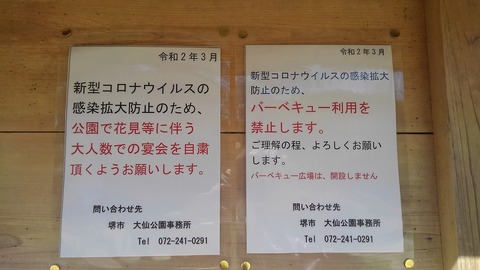 令和2年3月
新型コロナウイルスの
感染拡大防止のため、
公園で花見等に伴う
大人数での宴会を自粛
頂くようお願いします。
問い合わせ先
堺市 大仙公園事務所
Tel 072-241-0291
令和2年3月
新型コロナウイルスの感染拡大
防止のため、
バーベキュー利用を
禁止します。
ご理解の程、よろしくお願い
します。
バーベキュー広場は、開設しません
問い合わせ先
堺市 大仙公園事務所
Tel 072-241-0291